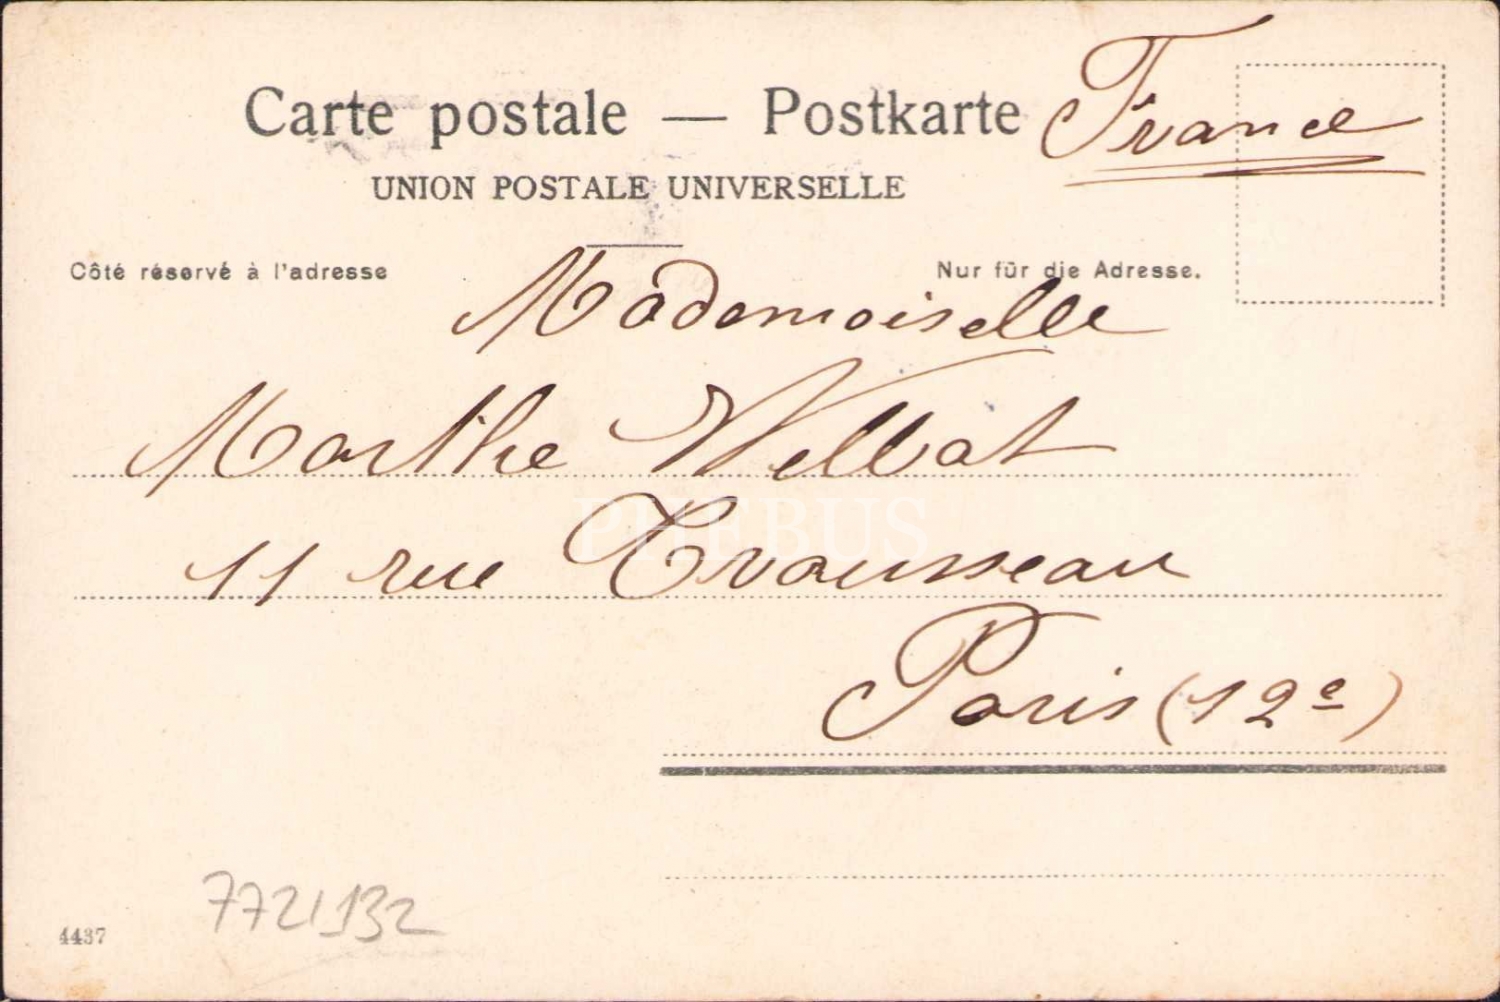 France
Carte postale — Postkarte
UNION POSTALE UNIVERSELLE
Côté réservé à l'adresse
Nur für die Adresse.
Mademoiselle
Marthe Vellat
PHEBUS
11 rue Trousseau
Paris (12e)
7721132
4437